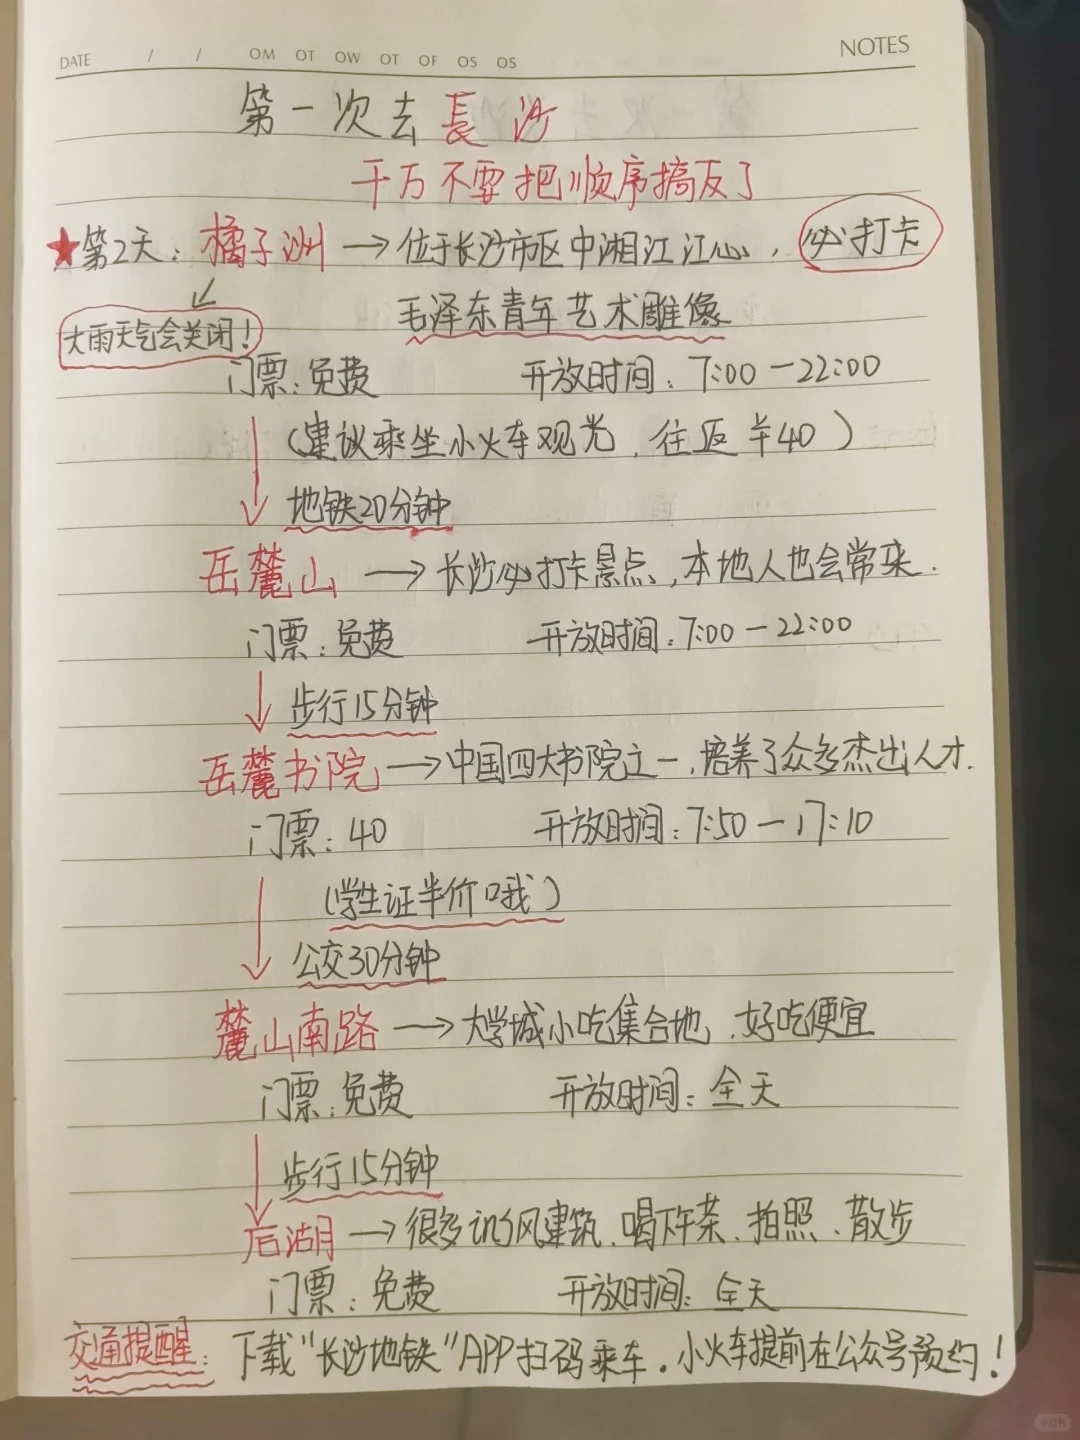 DATE / / OM OT OW OT OF OS OS NOTES
第一次去長沙
千万不要把顺序搞反了
★第2天：橘子洲→位于长沙市区中湘江江心，必打卡
毛泽东青年艺术雕像
大雨天气会关闭！
门票：免费 开放时间：7:00—22:00
（建议乘坐小火车观光，往返￥40）
地铁20分钟
岳麓山→长沙必打卡景点，本地人也会常来.
门票：免费 开放时间：7:00—22:00
步行15分钟
岳麓书院→中国四大书院之一，培养了众多杰出人才.
门票：40 开放时间：7:50—17:10
（学生证半价哦）
公交30分钟
麓山南路→大学城小吃集合地，好吃便宜
门票：免费 开放时间：全天
步行15分钟
后湖→很多 风建筑、喝下午茶、拍照、散步
门票：免费 开放时间：全天
交通提醒：下载“长沙地铁”APP扫码乘车.小火车提前在公众号预约！
小红书